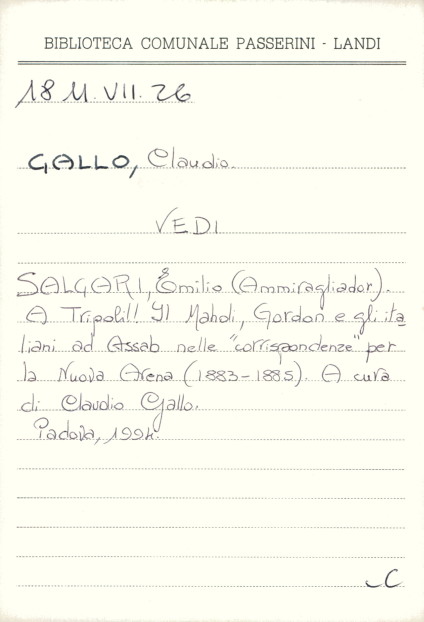 BIBLIOTECA COMUNALE PASSERINI - LANDI
18 M. VII. 26
GALLO, Claudio.
VEDI
SALGARI, Emilio (Ammiragliador).
A Tripoli!! Il Mahdi, Gordon e gli ita
liani ad Assab nelle "corrispondenze" per
la Nuova Arena (1883-1885). A cura
di Claudio Gallo.
Padova, 1994.
C